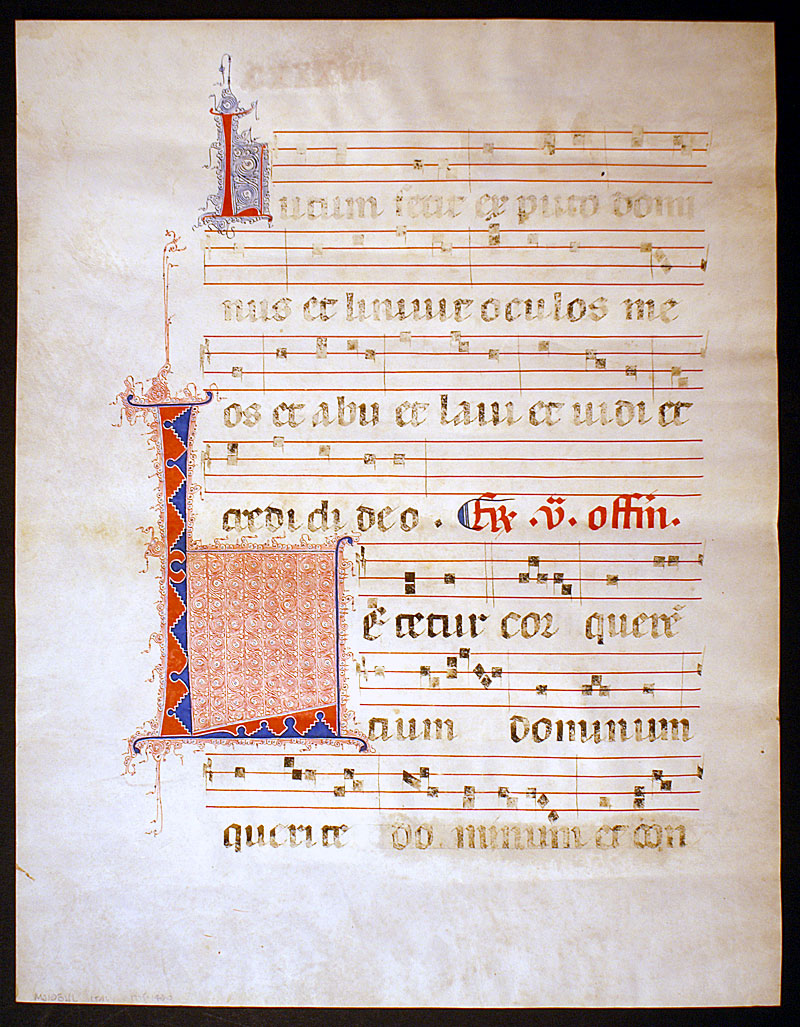 Lutum fecit ex puto domi
nus et liniuit oculos me
os et abii et laui et uidi et
credidi deo. .v. offm.
Letetur cor querē
tium dominum
querite do minum et con